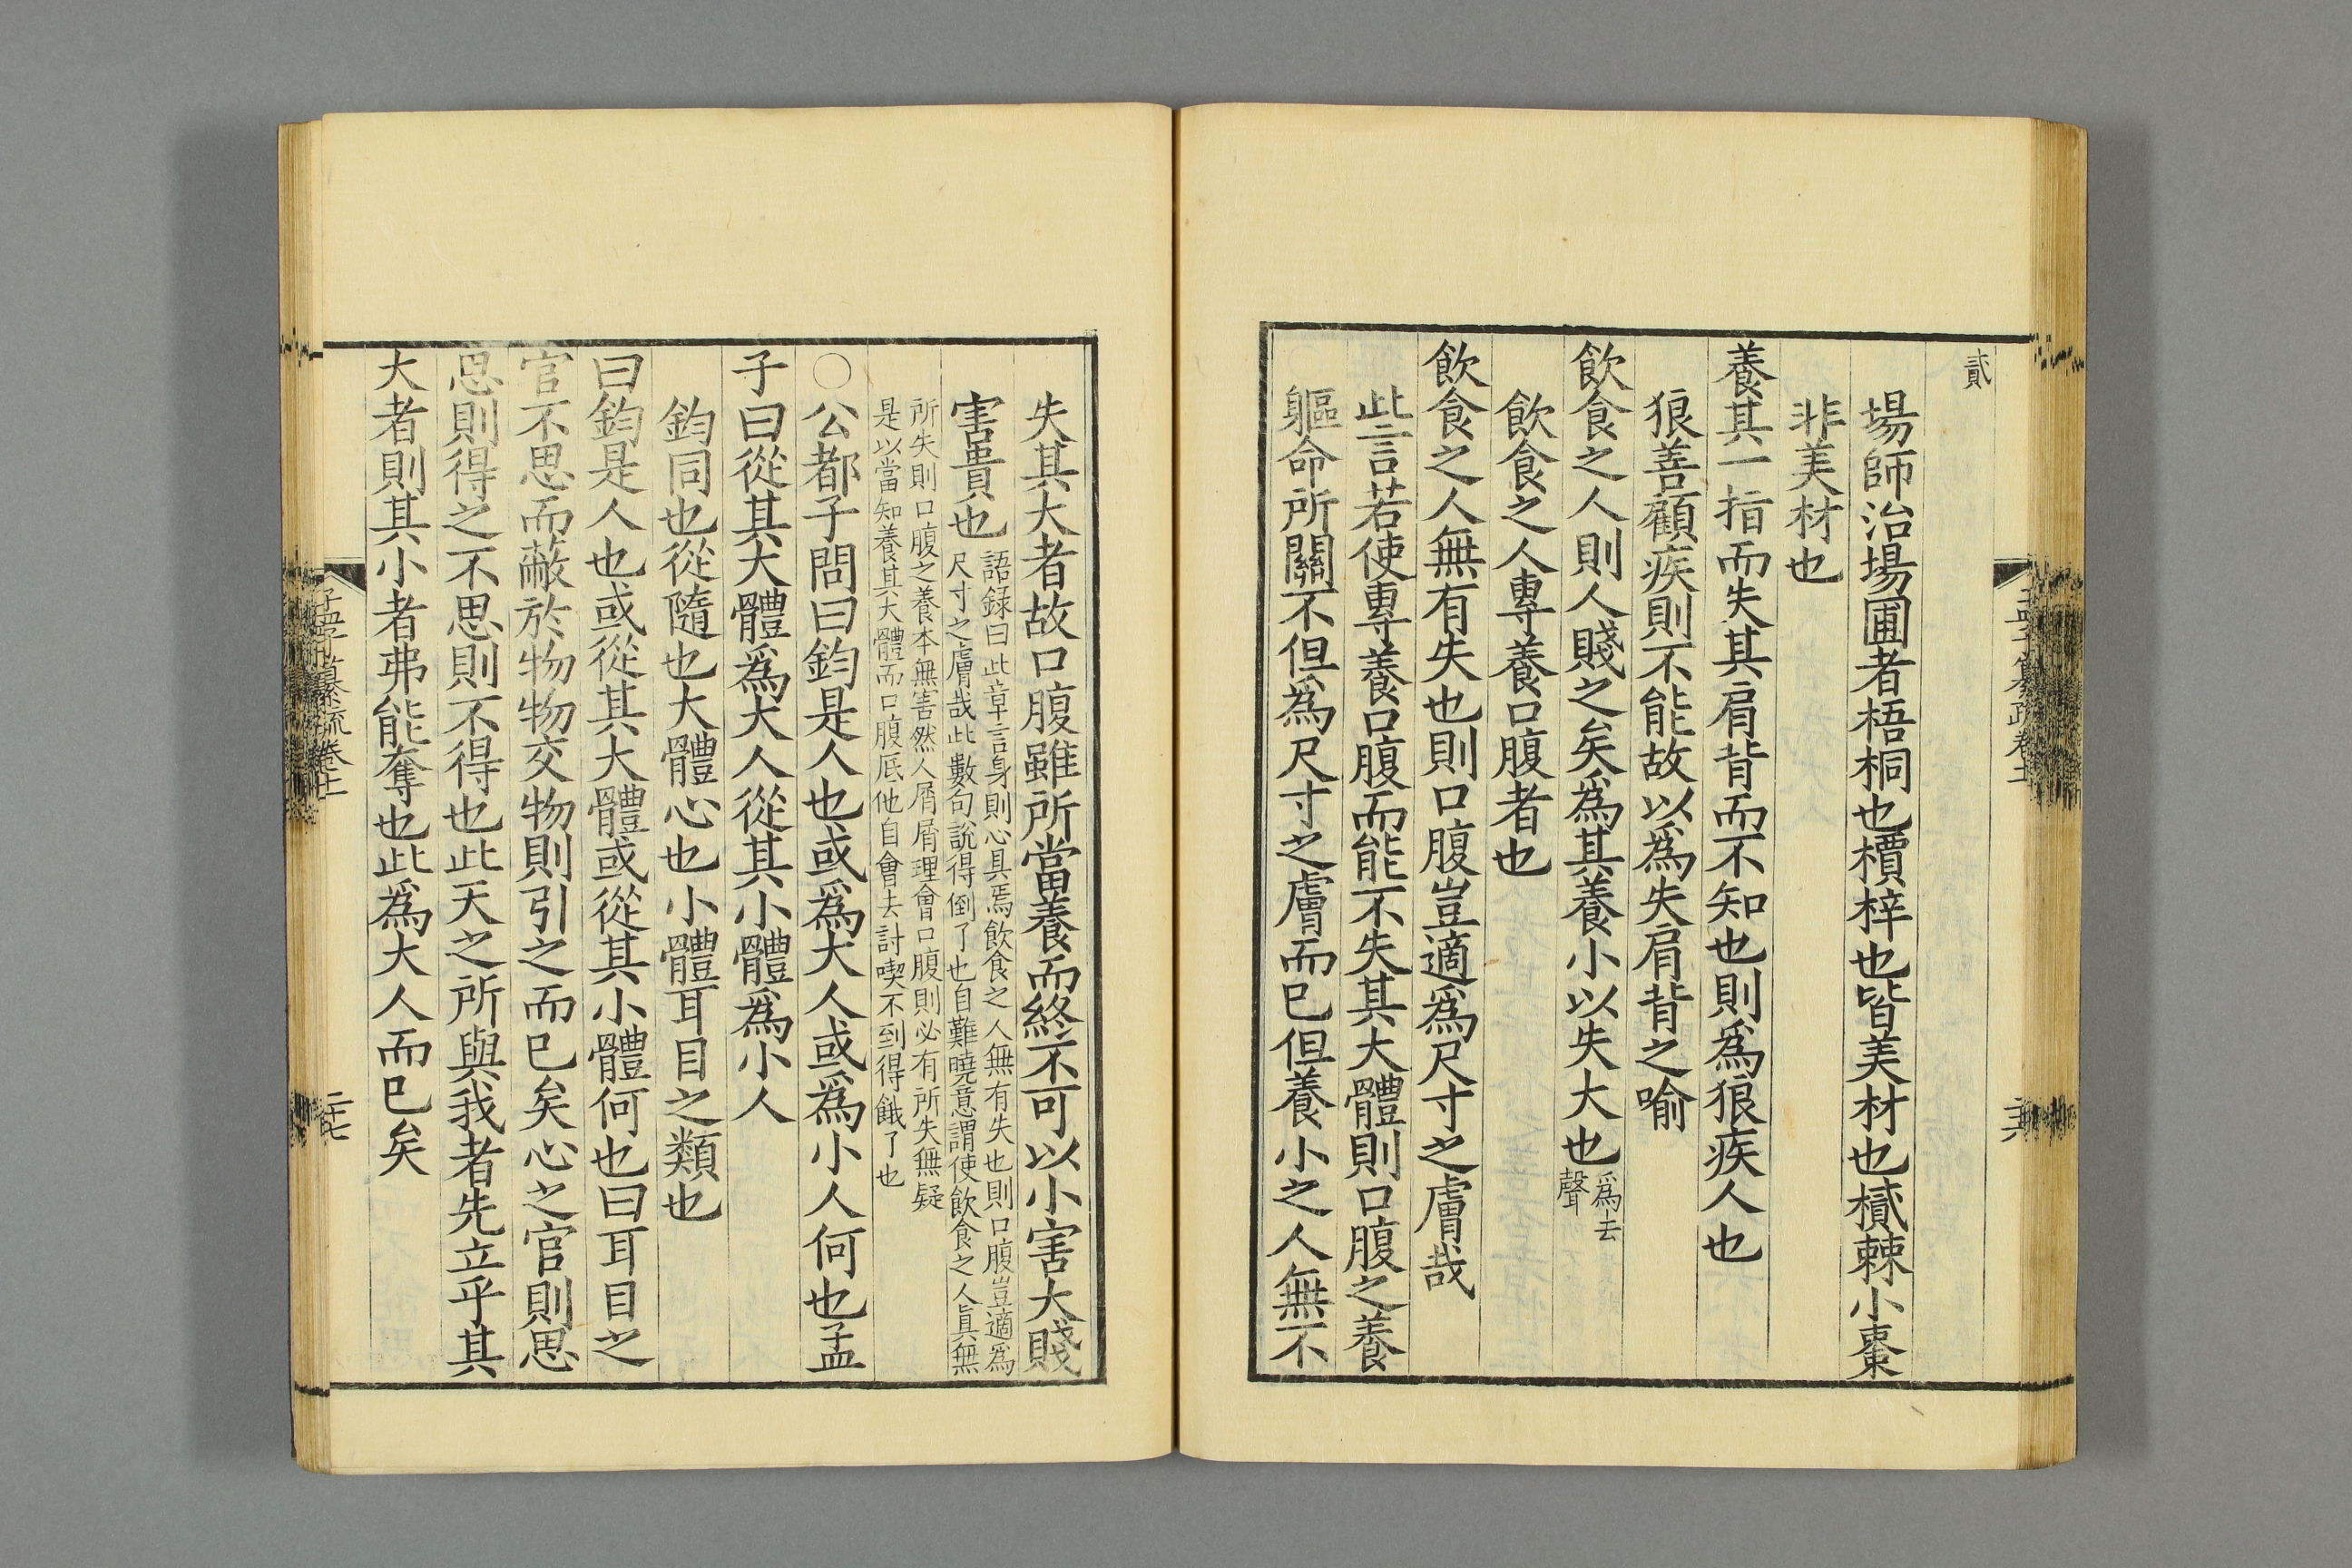 貳
場師治場圃者梧桐也檟梓也皆美材也樲棘小棗
非美材也
養其一指而失其肩背而不知也則爲狼疾人也
狼善顧疾則不能故以爲失肩背之喻
飲食之人則人賤之矣爲其養小以失大也爲去
聲
飲食之人專養口腹者也
飲食之人無有失也則口腹豈適爲尺寸之膚哉
此言若使專養口腹而能不失其大體則口腹之養
軀命所關不但爲尺寸之膚而已但養小之人無不
失其大者故口腹雖所當養而終不可以小害大賤
害貴也
語録曰此章言身則心具焉飲食之人無有失也則口腹豈適爲
尺寸之膚哉此數句說得倒了也自難曉意謂使飲食之人眞無
所失則口腹之養本無害然人屑屑理會口腹則必有所失無疑
是以當知養其大體而口腹底他自會去討喫不到得餓了也
○公都子問曰鈞是人也或爲大人或爲小人何也孟
子曰從其大體爲大人從其小體爲小人
鈞同也從隨也大體心也小體耳目之類也
曰鈞是人也或從其大體或從其小體何也曰耳目之
官不思而蔽於物物交物則引之而已矣心之官則思
思則得之不思則不得也此天之所與我者先立乎其
大者則其小者弗能奪也此爲大人而已矣